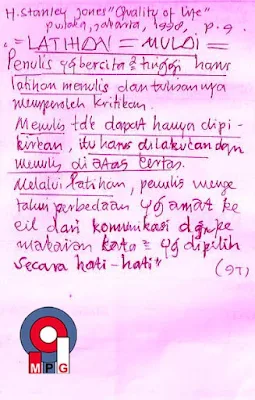 H. Stanley Jones "Quality of Life"
Jakarta, 1990, p. 9
= LATIHAN = MULAI =
Penulis yg bercita² tinggi harus
latihan menulis dan tulisannya
memperoleh kritikan.
Menulis tdk dapat hanya dipi-
kirkan, itu harus dilakukan dgn
menulis di atas kertas.
Melalui latihan, penulis menge
tahui perbedaan yg amat ke
cil dari komunikasi dgn pe
makaian kata² yg dipilih
secara hati-hati"
MPG